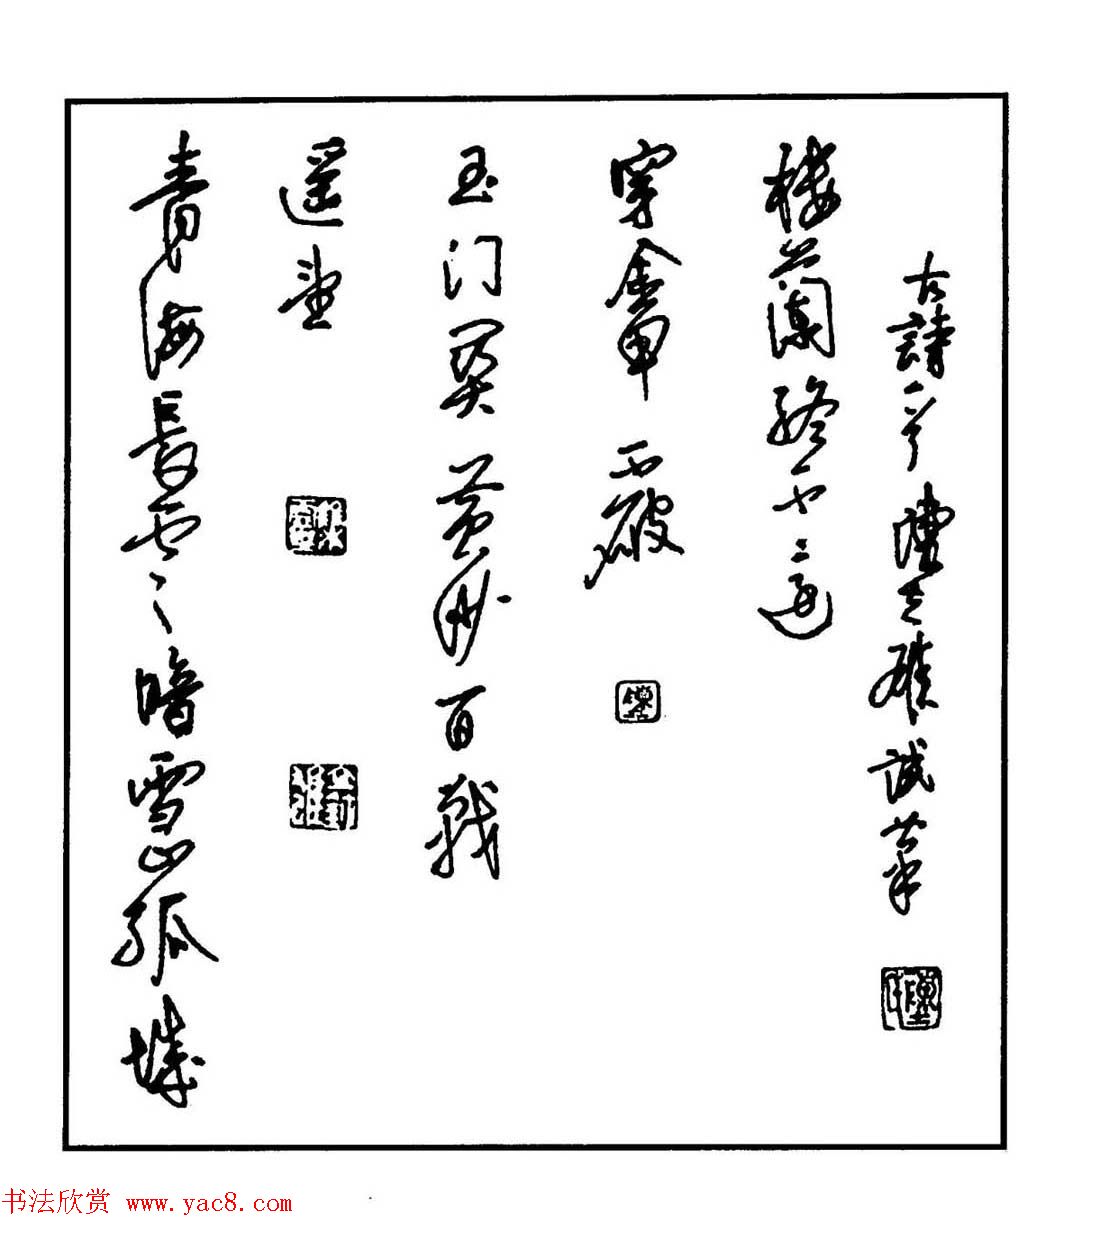 青海長雲暗雪山孤城
遥望
玉门関黄沙百戰
穿金甲不破
楼蘭終不還
古詩一首 試筆
书法欣赏 www.yac8.com